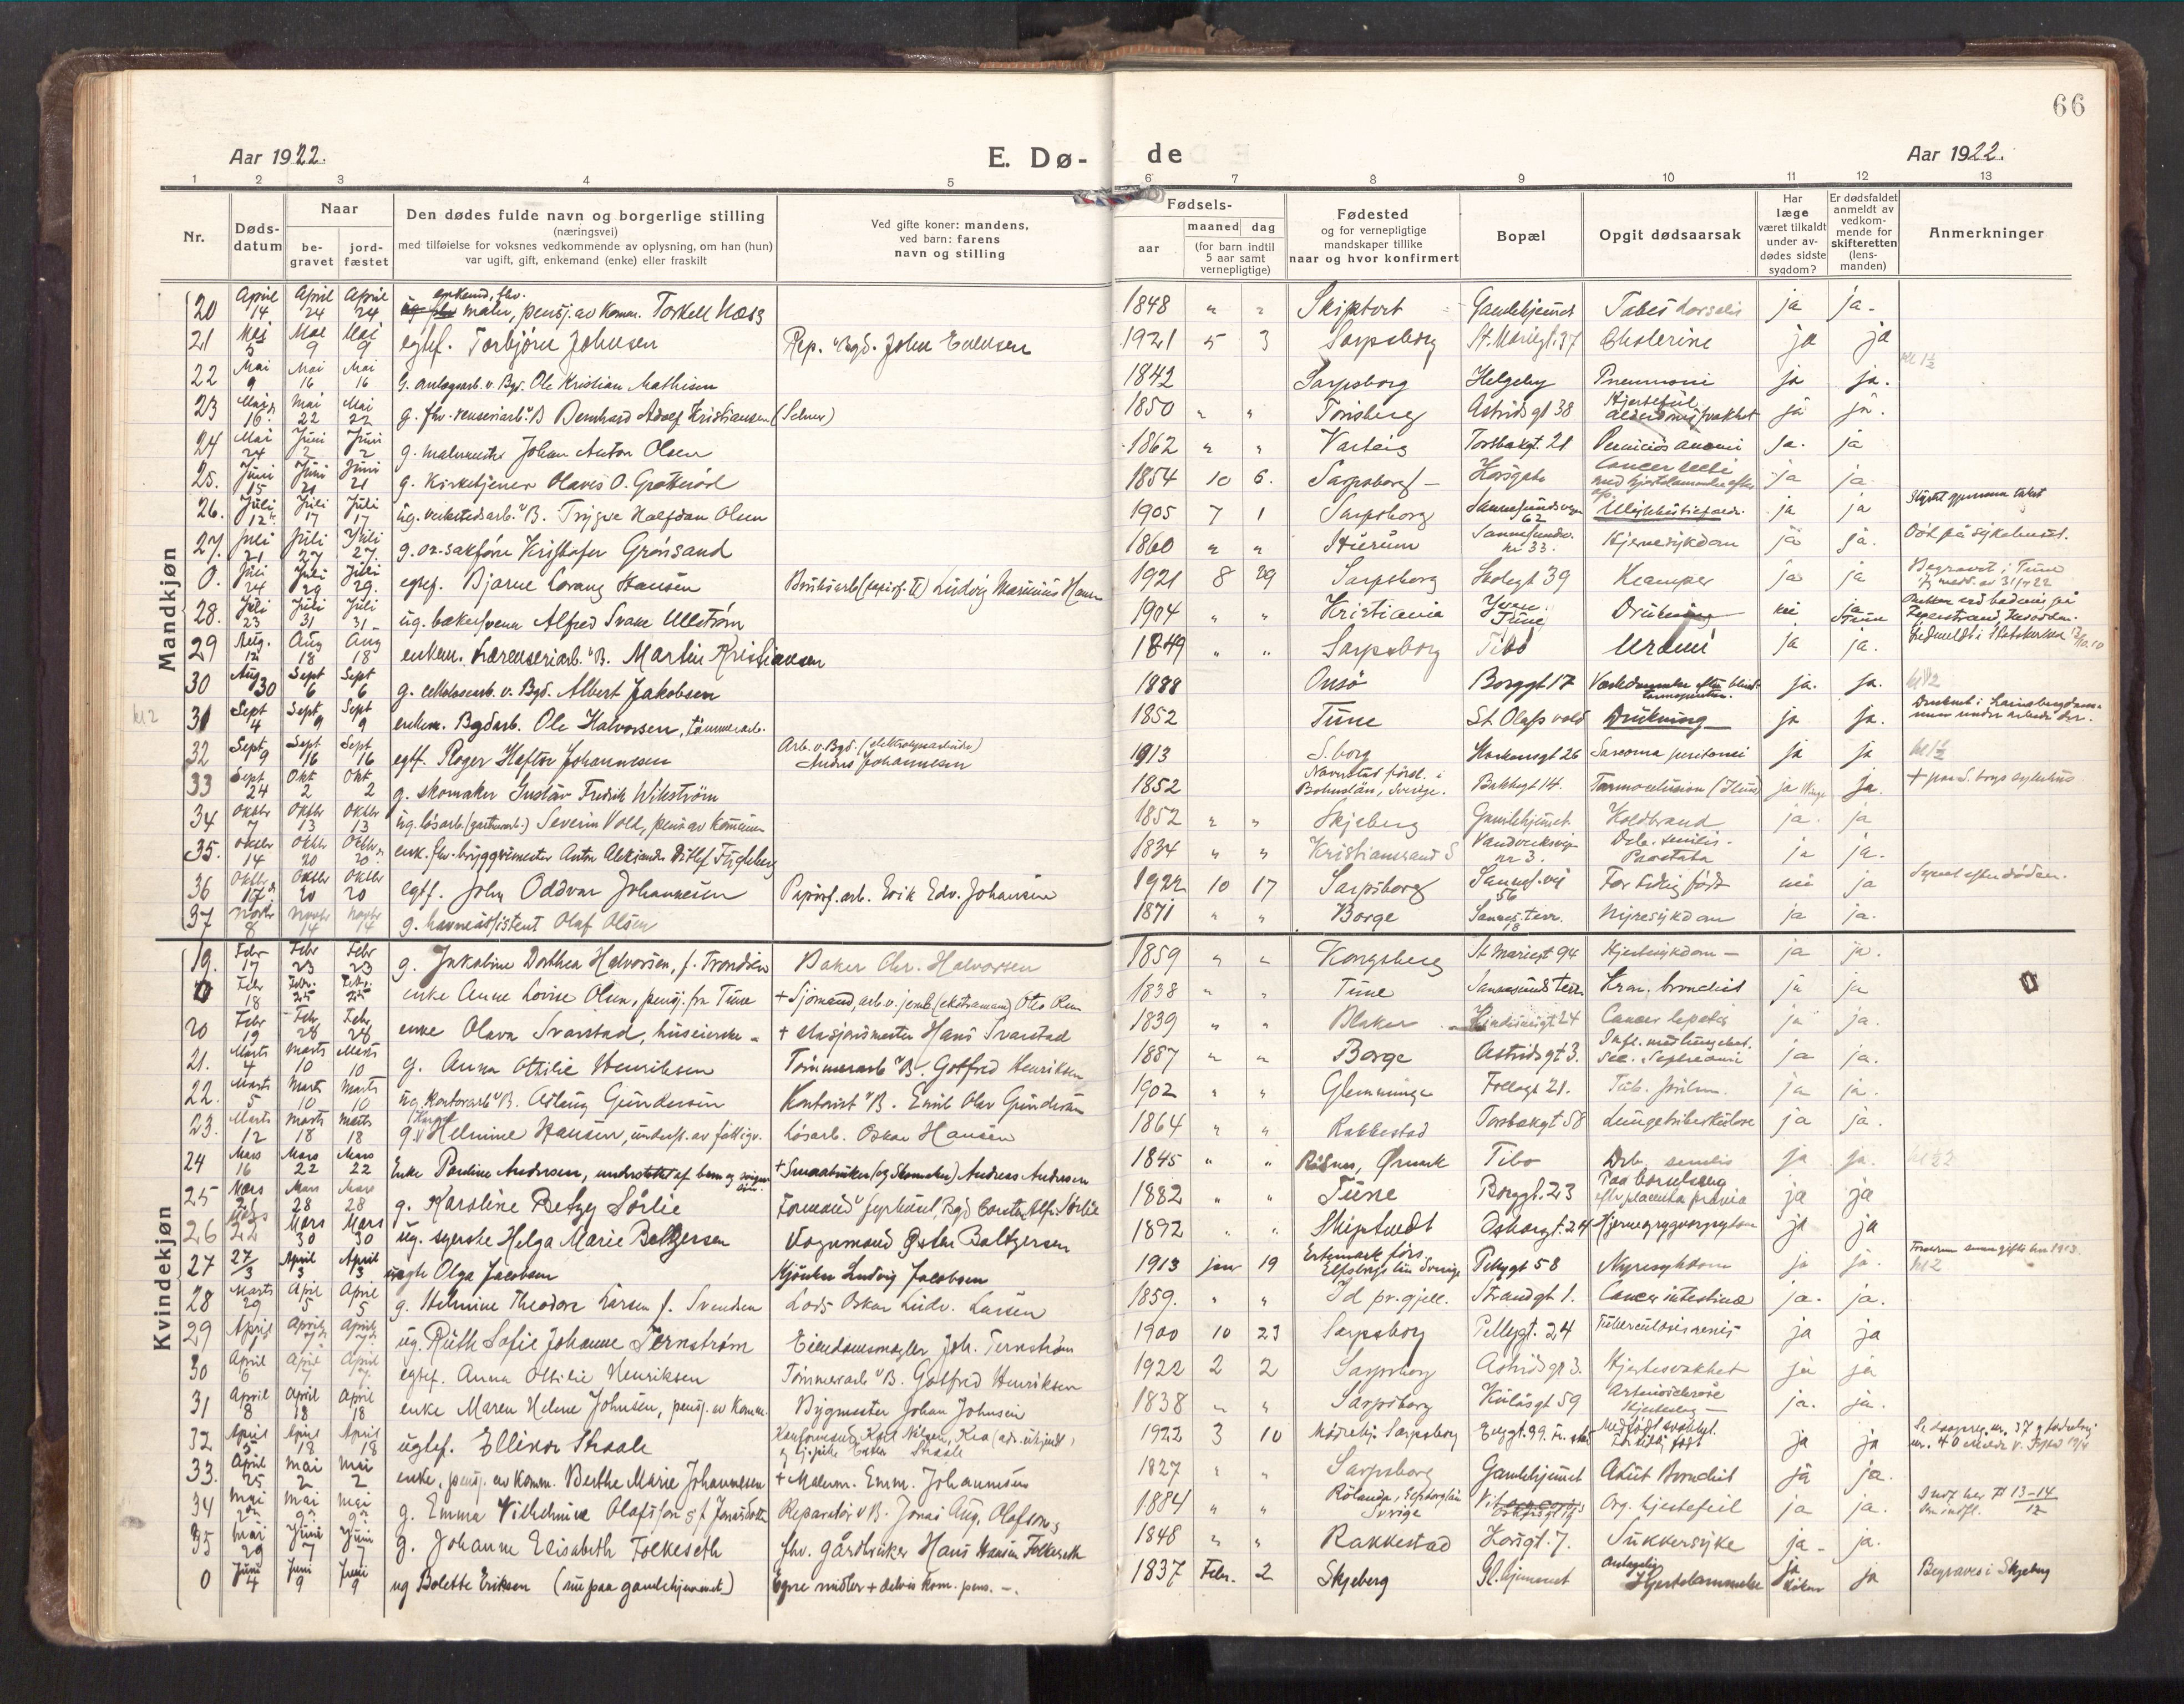 66
Aar 1922.
E. Dø-
de
Aar 1922.
1 2 3 4 5 6 7 8 9 10 11 12 13
Nr.
Døds-
datum
Naar
be-
gravet
jord-
fæstet
Den dødes fulde navn og borgerlige stilling
(næringsvei)
med tilføielse for voksnes vedkommende av oplysning, om han (hun)
var ugift, gift, enkemand (enke) eller fraskilt
Ved gifte koner: mandens,
ved barn: farens
navn og stilling
Fødsels-
aar
maaned dag
(for barn indtil
5 aar samt
vernepligtige)
Fødested
og for vernepligtige
mandskaper tillike
naar og hvor konfirmert
Bopæl
Opgit dødsaarsak
Har
læge
været tilkaldt
under av-
dødes sidste
sygdom?
Er dødsfaldet
anmeldt av
vedkom-
mende for
skifteretten
(lens-
manden)
Anmerkninger
Mandkjøn
20 April 14 April 24 April 24 enkem. fhv. maler, pensj. av Komm. Torkell Næss 1848 " " Skiptvet Gamlehjemmet Tabes dorsalis ja ja.
21 Mai 5 Mai 9 Mai 9 egtef. Torbjørn Johnsen Rep. v. Bgd. John Evensen 1921 5 3 Sarpsborg St. Mariegt. 37 Cholerine ja ja
22 Mai 9 Mai 16 Mai 16 g. anlægsarb. v. Bgd. Ole Kristian Mathisen 1842 Sarpsborg Helgeby Pneumoni ja ja.
23 Mai 16 Mai 22 Mai 22 g. fhv. renseriarb. v. B Bernhard Adolf Kristiansen 1850 " " Tønsberg Astridsgt 38 Hjertefeil alderdomssvakhet ja ja.
24 Mai 24 Juni 2 Juni 2 g. malermester Johan Anton Olsen 1862 " " Varteig Torsbakgt. 21 Perniciøs anemi ja. ja
25. Juni 15 Juni 21 Juni 21 g. Kirketjener Olaves O. Grøtterød 1854 10 6. Sarpsborg Korsgata Cancer recti ja ja
26. Juli 12 Juli 17 Juli 17 ug. verkstedarb. v. B. Trygve Halfdan Olsen 1905 7 1 Sarpsborg Sannesundsveien 62 Ulykkestilfælde. ja ja Styrtet gjennem taket
27. Juli 21 Juli 27 Juli 27. g. o.r.sakfører Kristofer Grønsand 1860 " " Hurum Sannesundsv. nr 33. Hjernesykdom ja ja. Død på sykehuset.
0. Juli 24 Juli 29 Juli 29. egtef. Bjarne Lorang Hansen Bruksarb (papirf. II) Ludvig Marinius Hansen 1921 8 29 Sarpsborg Skolegt 39 Kramper ja ja Begravet i Tune
28. Juli 23 Juli 31 Juli 31 ug. bakersvenn Alfred Svane Ullstrøm 1904 " " Kristiania Tune Drukning nei ja Tune
29 Aug. 12 Aug 18 Aug 18 enkem. Martin Kristiansen 1849 " " Sarpsborg Tibo Uræmi ja ja.
30 Aug 30 Sept 6 Sept 6 g. cellulosearb. v. Bgd. Albert Jakobsen 1888 Onsø Borggt 17 ja. ja. kl 2
kl 2 31 Sept 4 Sept 9 Sept 9 enkem. Bgdarb. Ole Halvorsen, tømmerarb. 1852 Tune St. Olafs vold Drukning ja ja.
32 Sept 9 Sept 16 Sept 16 egtf. Roger Haftor Johannesen Arb. v. Bgd. (elektrolysearbeider) Anders Johannesen 1913 S.borg Haakonsgt 26 Sarcoma peritonei ja ja
33 Sept 24 Okt 2 Okt. 2 g. skomaker Gustav Fredrik Wikström 1852 Naverstad förs. i Bohuslän, Sverige. Bakkegt 14. Tarmocclusion (Ileus) ja ja. + paa S.borgs sykehus
34 Oktbr 7 Oktbr 13 Oktbr 13 ug. løsarb. (gartnerarb.) Severin Voll, pens. av kommunen 1852 " " Skjeberg Gamlehjemmet Koldbrand ja. ja
35. Oktbr 14 Oktbr 20 Oktbr 20 enk. fhv. bryggerimester Anton Aleksander Ditlef Fugleberg 1834 " " Kristianssand S Vandverksveien nr 3. Deb. senilis. Prostata ja ja.
36 Oktbr 17 Oktbr 20 Oktbr 20 egtf. John Oddvar Johannesen Papirf. arb. Erik Edv. Johansen 1922 10 17 Sarpsborg Sannes. vei 56 For tidlig født nei ja Synet efter døden.
37 Novbr 8 Novbr 14 Novbr 14 g. havneassistent Olaf Olsen 1871 " " Borge Sannes. terr. 18 Nyresykdom ja ja.
Kvindekjøn
19. Febr 17 Febr 23 Febr 23 g. Jakobine Dorthea Halvorsen, f. Trondsen Baker Chr. Halvorsen 1859 " " Kongsberg St Mariegt 94 Hjertesykdom – ja ja.
0 Febr 18 Febr. 25 Febr. 25 enke Anne Lovise Olsen, pensj. fra Tune 1838 " " Tune Sannesunds terr Kron. bronchit ja ja 0
20 Febr 19 Febr 28 Febr 28 enke Olava Svarstad, huseierske – + stasjonsmester Hans Svarstad 1839 " " Blaker Cancer hepatis ja ja.
21. Marts 4 Marts 10 Marts 10 g. Anna Ottilie Henriksen Tømmerarb v. B. Gotfred Henriksen 1887 " " Borge Astridsgt 3. ja ja.
22. Marts 5 Marts 10 Marts 10 ug. Kontorarb v. B. Aslaug Gundersen Kontorist v. B. Emil Olav Gundersen 1902 " " Glemminge Follogt 21. Tub. pulm. ja ja.
23. Marts 12 Marts 18 Marts 18 g. Helmine Hansen, underst. av fattigv. Løsarb. Oskar Hansen 1864 " " Rakkestad Torsbakgt 58 Lungetuberkulose ja ja.
24 Mars 16 Mars 22 Mars 22 Enke Pauline Andersen, understøttet af barn og svigersøn. + Smaabruker (og Skomaker) Andreas Andersen 1845 " " Risnes, Ørsmark Tibo Deb. senilis ja ja.
25 Mars 21 Mars 28 Mars 28 g. Karoline Betzy Sørlie 1882 " " Tune Borggt. 23 efter placenta prævia ja ja
26 Mars 22 Mars 30 Mars 30 ug. syerske Helga Marie Baltzersen Vognmand Østen Baltzersen 1892 " " Skiptvedt Oskarsgt. 24 ja ja
27 27/3 April 3 April 3 Olga Jacobsen Kjøreren Ludvig Jacobsen 1913 jan 19 Ertemark förs. Elfsborgs län Sverige Pellygt 58 Nyresykdom ja ja.
28 Marts 29 April 5 April 5 g. Helmine Theodora Larsen f. Svendsen Lods Oskar Ludv. Larsen 1859. " " Id pr.gjell. Strandgt 1. Cancer intestinæ ja. ja.
29 April 1 April 7 April 7 ug. Ruth Sofie Johanne Ternstrøm Eiendomsmægler Joh. Ternstrøm 1900 10 23 Sarpsborg Pellygt. 24 Tuberculosis renis ja ja
30 April 6 April 7 April 7 egtef. Anna Ottilie Henriksen Tømmerarb v. B. Gotfred Henriksen 1922 2 2 Sarpsborg Astridsgt 3. Hjertesvakhet ja ja
31 April 8 April 18 April 18 enke Maren Helene Johnsen, pensj. av Komm. Bygmester Johan Johnsen 1838 " " Sarpsborg Kulåsgt 59 Arteriosklerose Hjerteslag – ja. ja.
32 April 5 April 18 April 18 uegtef. Ellinor Skaale 1922 3 10 Mødrehj. Sarpsborg Medfødt svakhet. For tidlig født ja ja
33. April 25 Mai 2 Mai 2 enke, pensj. av komm. Berthe Marie Johannesen + Malerm. Emm. Johannesen 1827 " " Sarpsborg Gamlehjemmet Akut Bronchit ja ja.
34 Mai Mai 9 Mai 9 g. Emma Vilhelmina Olafsson, f. Jonasdotter Reparatør v. B. Jonas Aug. Olafsson 1884 " " Sverige Org. hjertefeil ja ja.
35 Mai 29 Juni 7 Juni 7 g. Johanne Elisabeth Folkeseth fhv. gårdbruker Hans Hansen Folkeseth 1848 " " Rakkestad Korsgt. 7. Sukkersyke ja – ja.
0 Juni 4 Juni 9 Juni 9 ug Bolette Eriksen (nu paa gamlehjemmet) Egne midler + delvis kom. pens. –. 1837 Febr. 2 Skjeberg Gl.hjemmet antagelig Hjertelammelse ja ja Begraves i Skjeberg